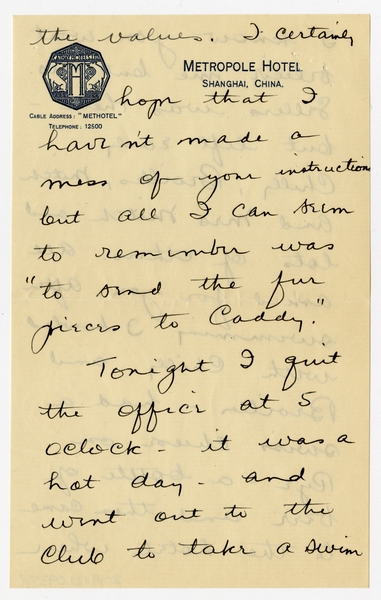 the values. I certainly
METROPOLE HOTEL
SHANGHAI, CHINA.
CABLE ADDRESS: "METHOTEL"
TELEPHONE: 12500
hope that I
haven't made a
mess of your instructions
but all I can seem
to remember was
"to send the fur
pieces to Caddy."
Tonight I quit
the office at 5
oclock - it was a
hot day - and
went out to the
Club to take a swim